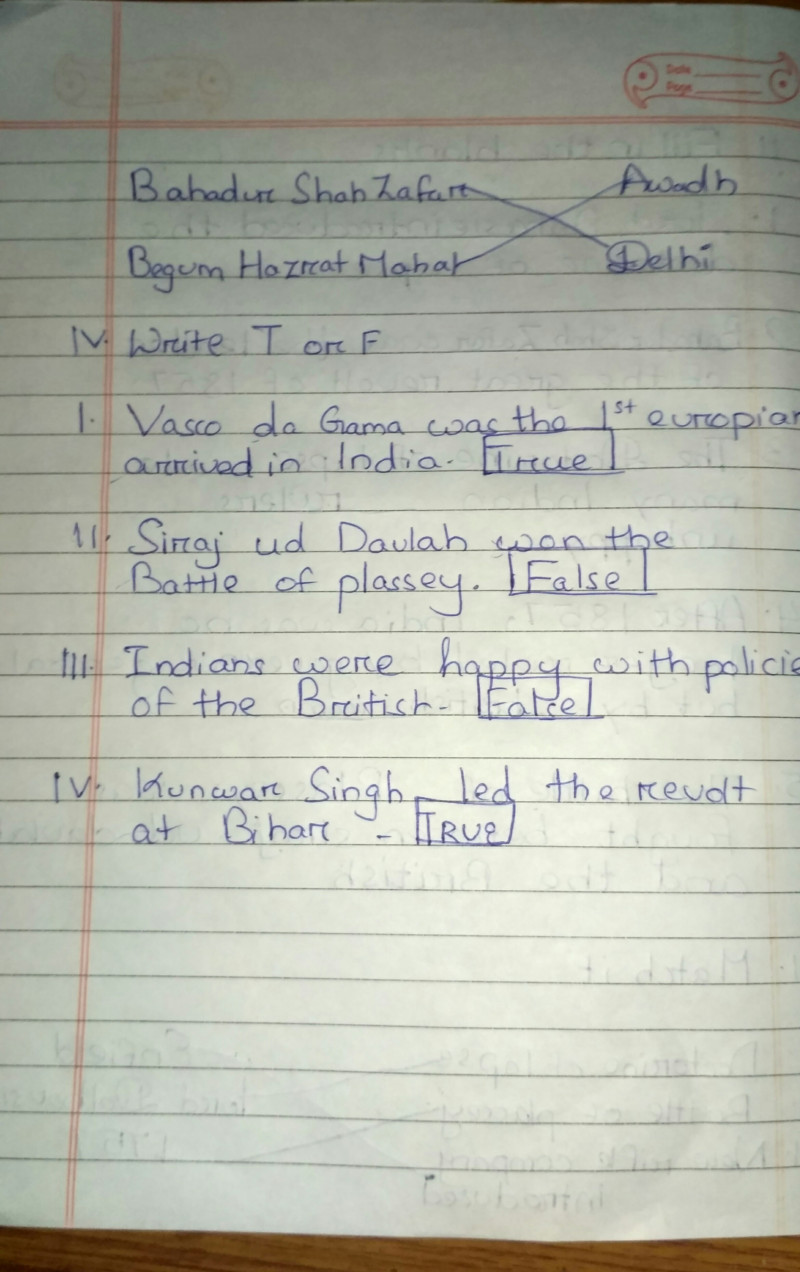 Date
Page
Bahadur Shah Zafar Awadh
Begum Hazrat Mahal Delhi
IV. Write T or F
I. Vasco da Gama was the 1st europian
arrived in India. True
II. Siraj ud Daulah won the
Battle of plassey. False
III. Indians were happy with policie
of the British - False
IV. Kunwar Singh led the revolt
at Bihar - TRUe